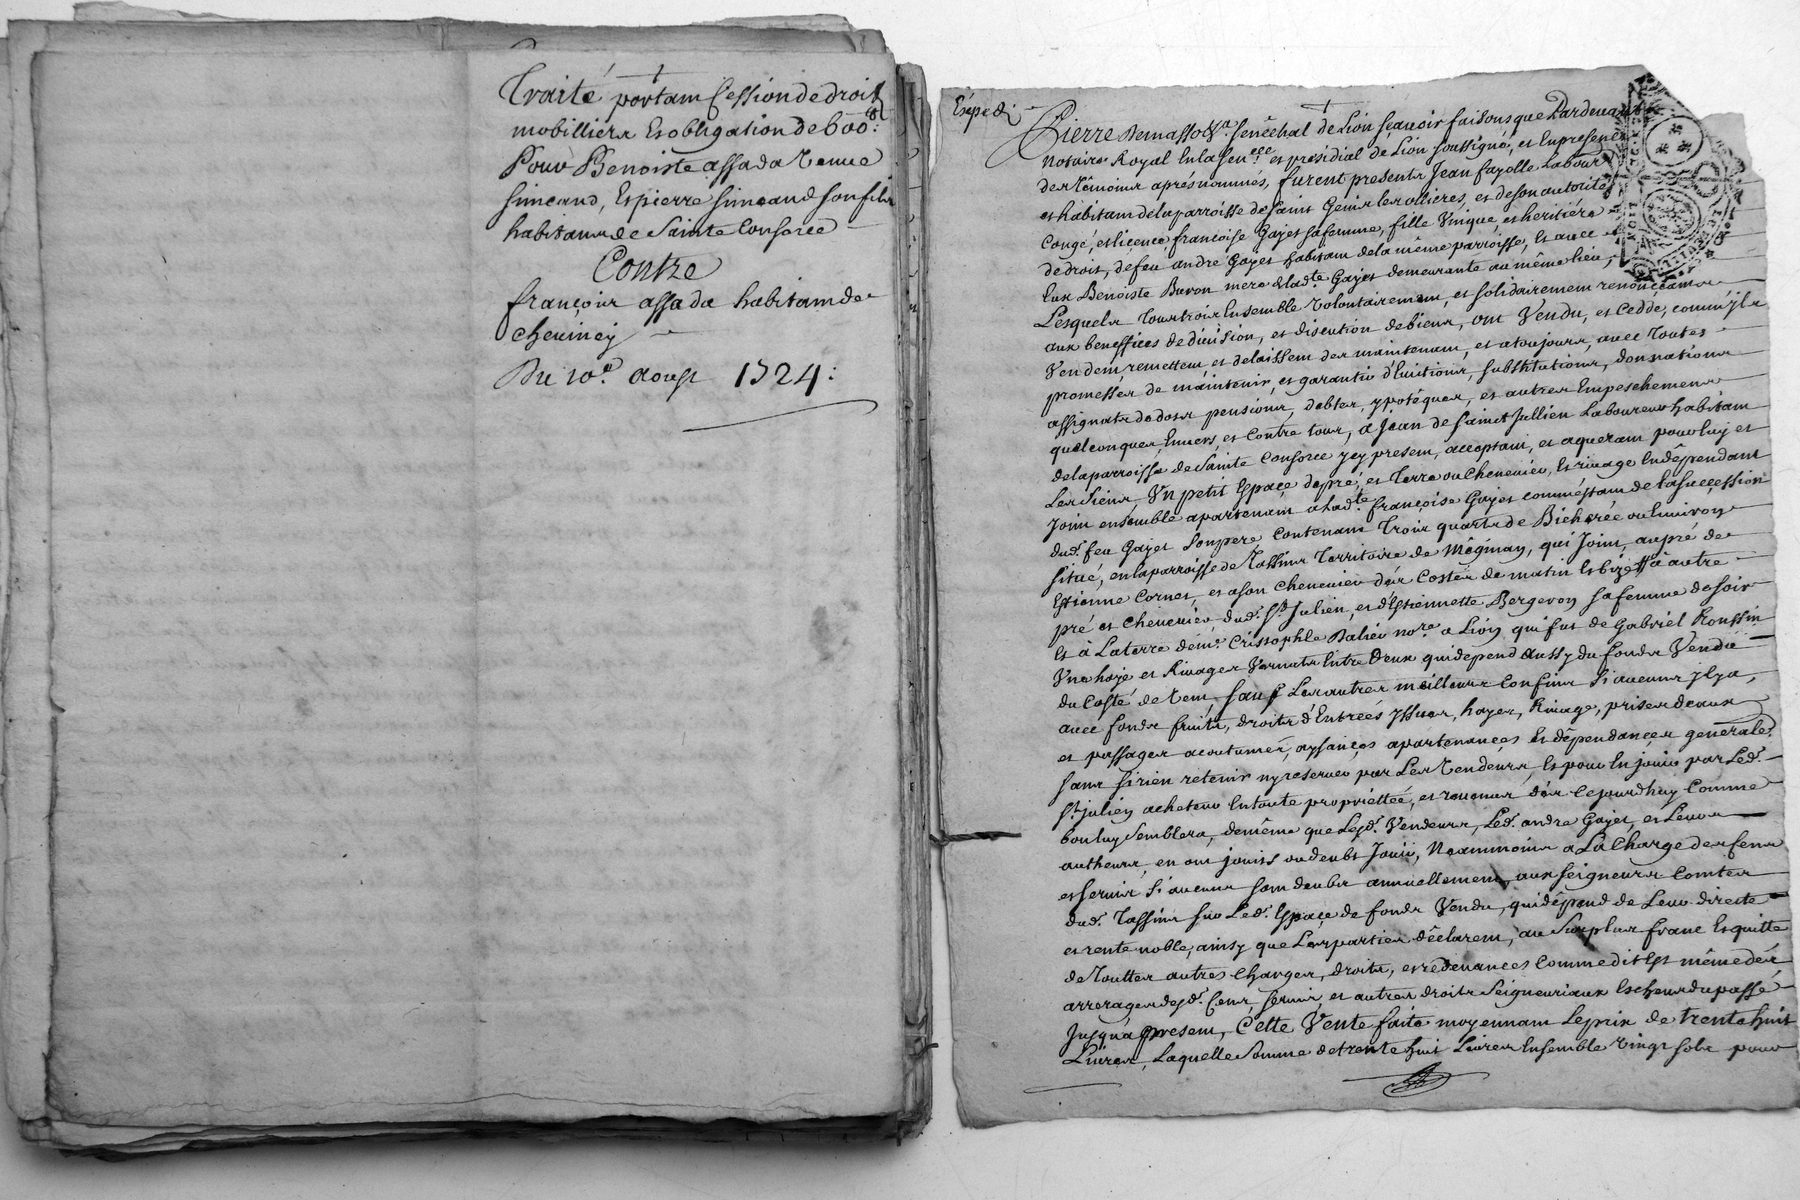 Traité portant Cession de droits
mobilliers Et obligation de 600#:
Pour Benoiste assada veuve
simeand, Et pierre simeand son fils
habitans de Sainte Consorce
Contre
françois assada habitant de
cheviney
Du 10e. aoust 1724:
Expedi
Pierre Demasso Sr. senêchal de Lion sçavoir faisons que Pardevant
notaire Royal En la senccée et presidial de Lion soussigné, et En presence
des têmoins aprés nommés, furent presents Jean fayolle Laboureur
et habitant de la parroisse de Saint Genis les ollieres, et de son autorité
Congé, et licence francoise Gayet sa femme, fille Unique et heritiére
de droit, de feu andré Gayet habitant de la même parroisse, Et avec
Eux Benoiste Buron mere de lade. Gayet demeurante au même lieu,
Lesquels Tous trois Ensemble Volontairement, et solidairement renonceans
aux beneffices de division, et discution de biens, ont Vendu, et Ceddé, comme ils
Vendent, remettent, et delaissent des maintenant, et a toujours, avec Toutes
promesses de maintenir, et garantir d'Evictions, substitutions, donnations
assignats de dots pensions, debtes, ypotêques, et autres Empeschemens
quelconques Envers, et Contre tous, à Jean de Sainct Jullien Laboureur habitant
de la parroisse de Sainte Consorce icy present, acceptant, et aquerant pour luy et
Les siens, Un petit Espace de pré, et Terre ou Chenevier, Et rivage En dêpendant
Joint ensemble apartenant a lade. françoise Gayet comme Estant de la succession
dud. feu Gayet Son pere, Contenant Trois quarts de Bicherée ou Environ
situé, en la parroisse de Tassins Territoire de Mêginay, qui Joint, au pré de
Estienne Cornet, et a son Chenevier des Costés de matin Et bize, a autre
pré et Chenevier dud. St. Julien, et d'Estiennette Bergeron sa femme de soir
Et à La terre de me. Cristophle Dalier nore. a Lion qui fut de Gabriel Roussin
Une haye et Rivages Vernets Entre Deux qui depend aussy du fonds Vendu
du Costé de vent, sauf Les autres meilleurs Confins si aucuns il y a,
avec fonds fruits, droits d'Entreés yssues, hayes, Rivage, prises d'eaux
et passages acoutumés, aysances apartenances Et dêpendances generales
sans si rien retenir ny reserver par Les Vendeurs, Et pour En jouir par Led.
St. julien acheteur En toute propriettée, et revenus dés Cejourdhuy Comme
bon luy semblera, de même que Lesd. Vendeurs, Led. andre Gayet, et Leurs
autheurs, en ont jouis ou deubt Jouir, Neantmoins a La Charge des sens
et servis si aucuns sont deubs annuellement, aux seigneurs Comtes
dud. Tassins sur Led. Espace de fonds Vendu, qui dêpend de Leur directe
et rente noble, ainsy que Les parties dêclarent, au surplus franc Et quitte
de Touttes autres Charges, droits, et redevances Comme dit Est même des
arrerages desd. Cens servis, et autres droits seigneuriaux Escheus du passé
Jusqu'a present, Cette Vente faite moyennant Le prix de trente huit
Livres, Laquelle somme de trente huit Livres Ensemble vingt sols pour